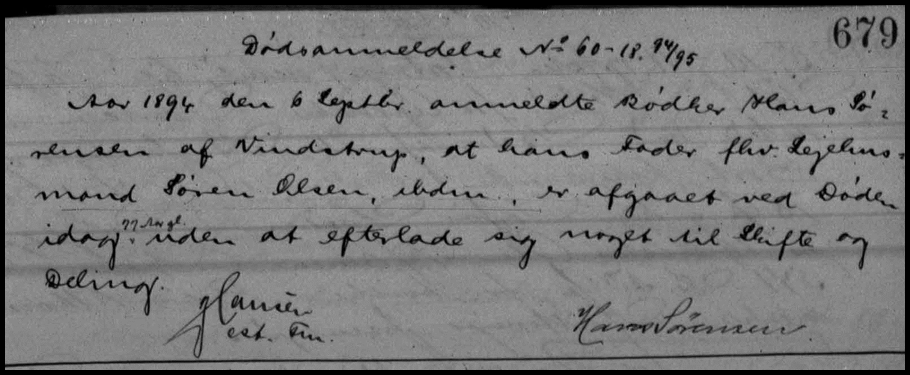 679
Dødsanmeldelse No 60-18.94/95
Aar 1894 den 6 Septbr. anmeldte Bødker Hans Sø-
rensen af Vindstrup, at hans Fader fhv. Lejehus-
mand Søren Olsen, ibdm., er afgaaet ved Døden
idag 77 Aar gl. uden at efterlade sig noget til Skifte og
Deling.
Hansen
cst. Fm.
Hans Sørensen